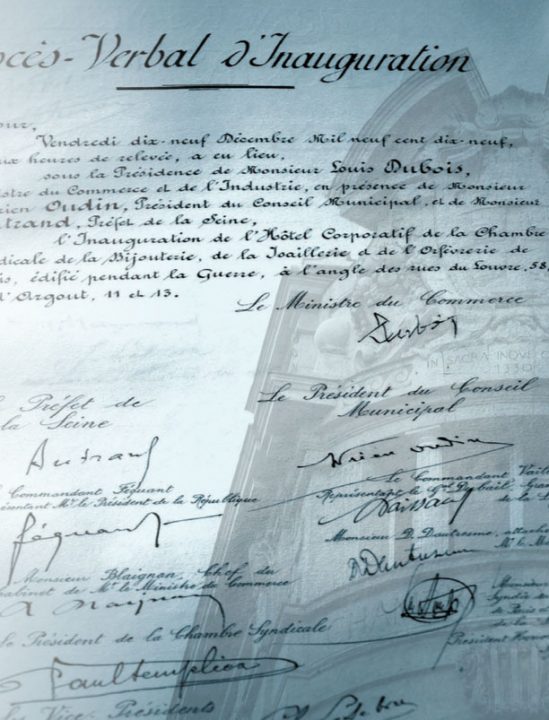 ocès-Verbal d'Inauguration
our,
Vendredi dix-neuf Décembre Mil neuf cent dix-neuf,
ux heures de relevée, a eu lieu,
sous la Présidence de Monsieur Louis Dubois,
stre du Commerce et de l'Industrie, en présence de Monsieur
rien Oudin, Président du Conseil Municipal, et de Monsieur
trand, Préfet de la Seine,
l'Inauguration de l'Hôtel Corporatif de la Chambre
dicale de la Bijouterie, de la Joaillerie et de l'Orfèvrerie de
is, édifié pendant la Guerre, à l'angle des rues du Louvre, 58,
d'Argout, 11 et 13.
Le Ministre du Commerce
IN SACRA INQUI
1330
Le Président du Conseil
Municipal
Préfet de
la Seine
Autrand
Adrien Oudin
Le Commandant Vaill
Représentant le Gal Dubail, Gran
de la L
Commandant Féquant
ésentant Mr le Président de la République
Féquant
Monsieur D. Dautresme, attach
Mr le M
D Dautresme
Monsieur Blaignan, Chef du
abinet de Mr le Ministre du Commerce
Monsieur
Syndic
de Paris
de la
Président
Le Président de la Chambre Syndicale
Paul Templier
Les Vice Présidents